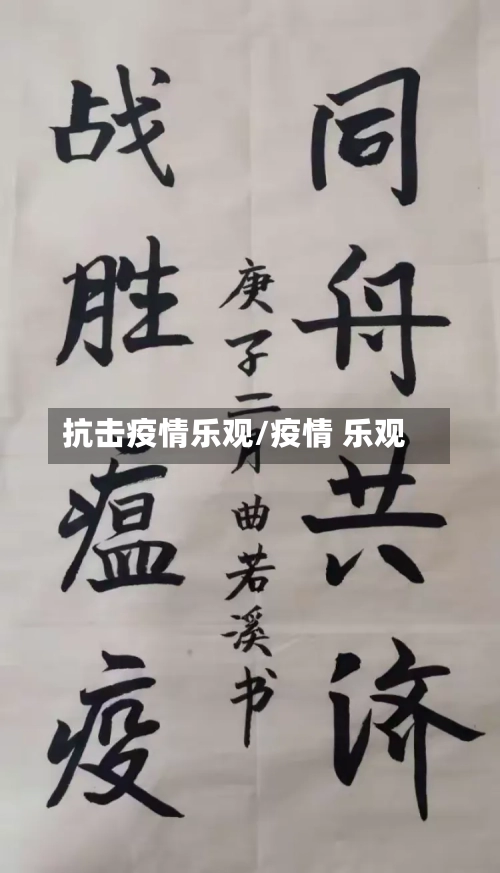 同舟共济
战胜瘟疫
庚子二月曲若溪书
抗击疫情乐观/疫情 乐观